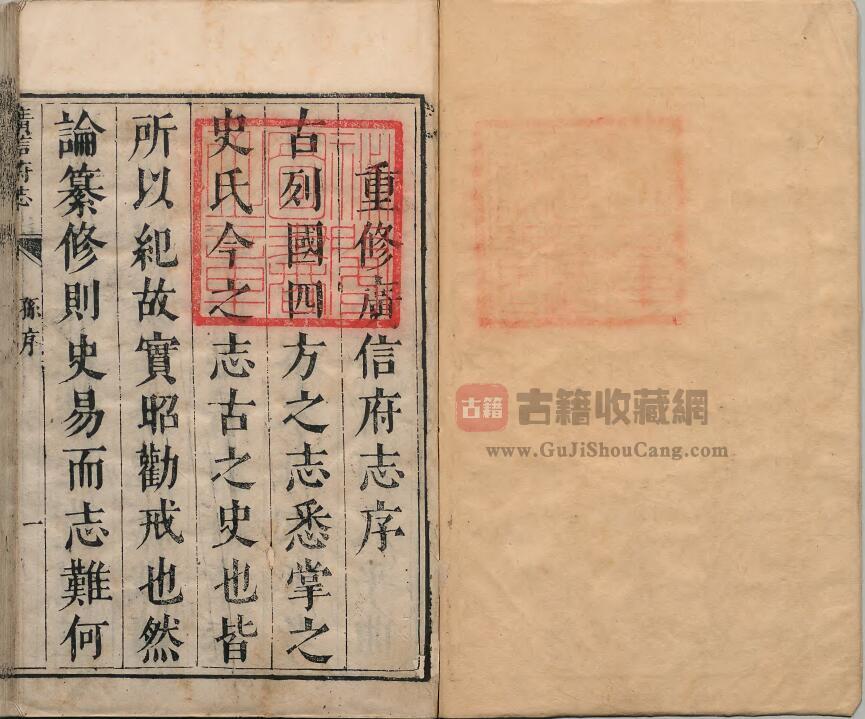 重修廣信府志序
古列國四方之志悉掌之
史氏今之志古之史也皆
所以紀故實昭勸戒也然
論纂修則史易而志難何
廣信府志
孫序
一
古籍
古籍收藏網
www.GuJiShouCang.com